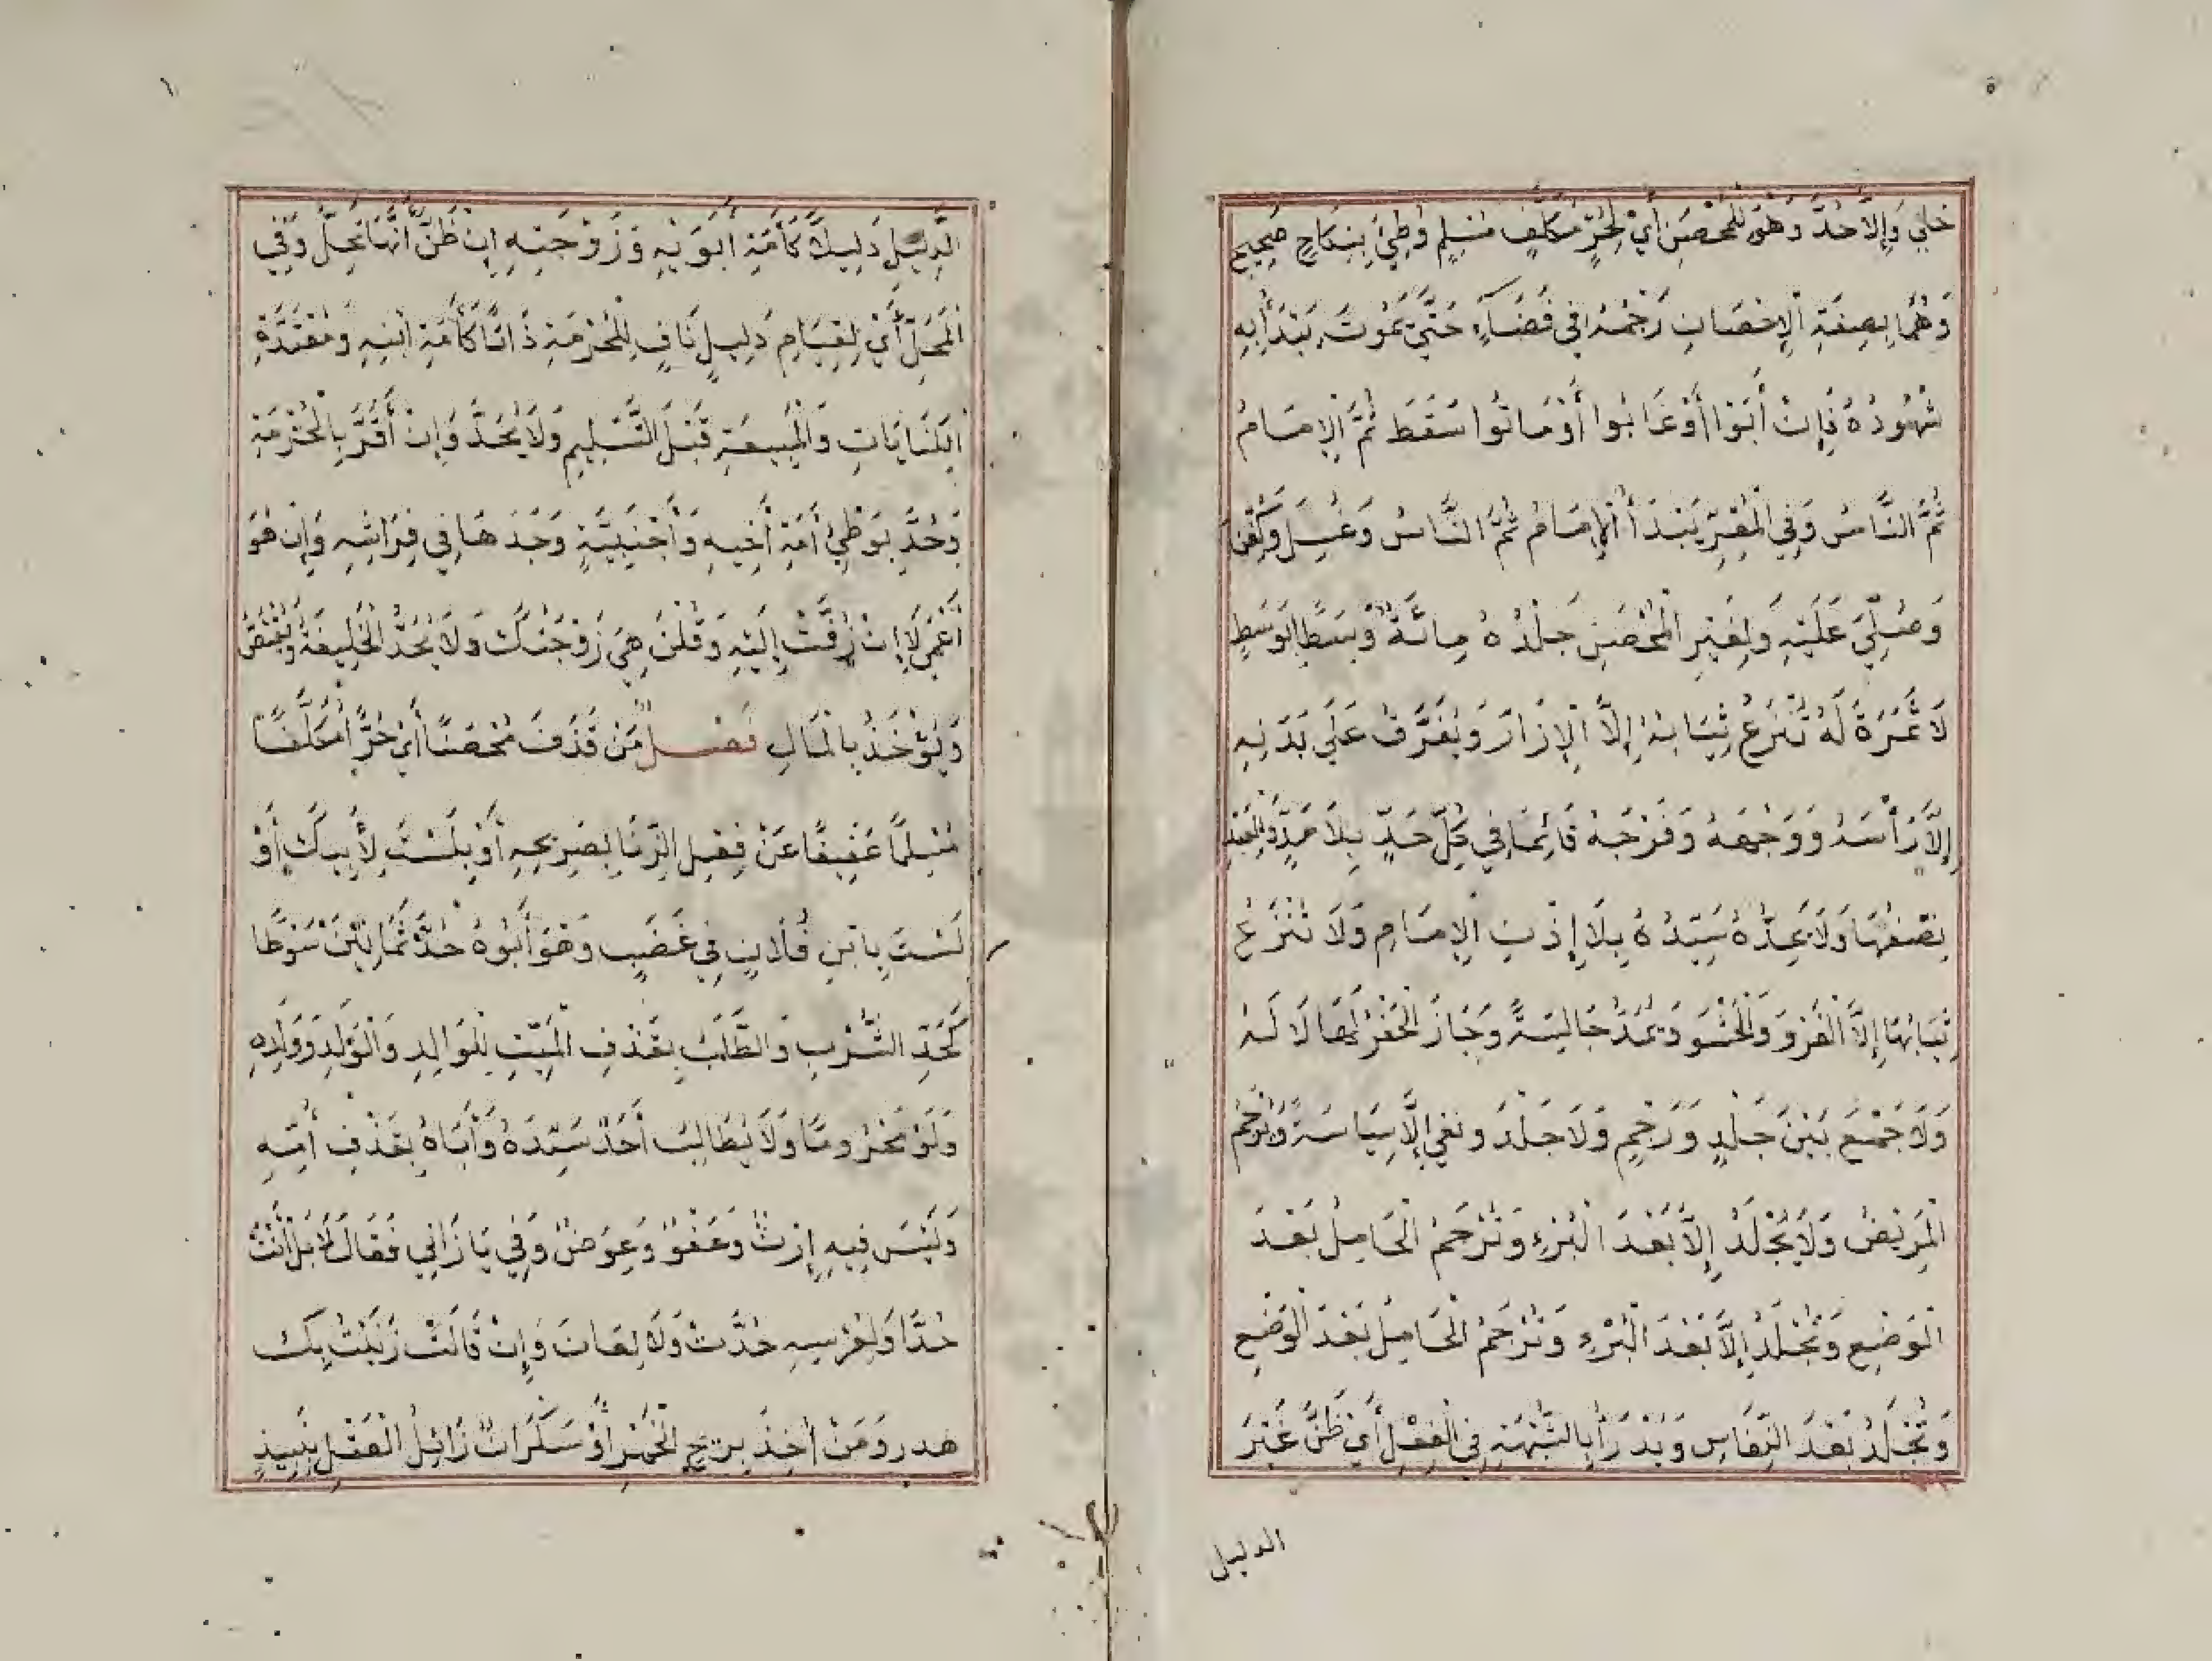 ٥
خلي وَإِلاَّ حُدَّ وَهُوَ لِلْمُحْصَنِ أَيْ لِحُرٍّ مُكَلَّفٍ مُسْلِمٍ وُطِئَ بِنِكَاحٍ صَحِيحٍ
وَهُمَا بِصِفَةِ الْإِحْصَانِ رَجْمُهُ فِي فَضَاءٍ حَتَّى يَمُوتَ يَبْدَأُ بِهِ
شُهُودُهُ فَإِنْ أَبَوْا أَوْ غَابُوا أَوْ مَاتُوا سَقَطَ ثُمَّ الْإِمَامُ
ثُمَّ النَّاسُ وَفِي الْمُقِرِّ يَبْدَأُ الْإِمَامُ ثُمَّ النَّاسُ وَغُسِلَ وَكُفِّنَ
وَصُلِّيَ عَلَيْهِ وَلِغَيْرِ الْمُحْصَنِ جَلْدُهُ مِائَةً وَسَطًا بِوَسَطٍ
لَا ثَمَرَةَ لَهُ تُنْزَعُ ثِيَابُهُ إِلاَّ الْإِزَارَ وَيُفَرَّقُ عَلَى بَدَنِهِ
إِلاَّ رَأْسَهُ وَوَجْهَهُ وَفَرْجَهُ قَائِمًا فِي كُلِّ حَدٍّ بِلَا مَدٍّ وَلِلْعَبْدِ
نِصْفُهَا وَلَا يَحُدُّهُ سَيِّدُهُ بِلَا إِذْنِ الْإِمَامِ وَلَا تُنْزَعُ
ثِيَابُهَا إِلاَّ الْفَرْوَ وَالْحَشْوَ وَتُحَدُّ جَالِسَةً وَجَازَ الْحَفْرُ لَهَا لَا لَهُ
وَلَا جَمْعَ بَيْنَ جَلْدٍ وَرَجْمٍ وَلَا جَلْدَ وَنَفْيِ إِلَّا سِيَاسَةً وَيُرْجَمُ
الْمَرِيضُ وَلَا يُجْلَدُ إِلاَّ بَعْدَ الْبُرْءِ وَتُرْجَمُ الْحَامِلُ بَعْدَ
الْوَضْعِ وَتُجْلَدُ إِلاَّ بَعْدَ الْبُرْءِ وَتُرْجَمُ الْحَامِلُ بَعْدَ الْوَضْعِ
وَتُجْلَدُ بَعْدَ النِّفَاسِ وَيُدْرَأُ بِالشُّبْهَةِ فِي الْفِعْلِ أَيْ ظَنَّ غَيْرَ
الدليل
الدَّلِيلِ دَلِيلًا كَأَمَةِ أَبَوَيْهِ وَزَوْجَتِهِ إِنْ ظَنَّ أَنَّهَا تَحِلُّ وَفِي
الْمَحَلِّ أَيْ لِقِيَامِ دَلِيلٍ نَافٍ لِلْحُرْمَةِ ذَاتًا كَأَمَةِ ابْنِهِ وَمُعْتَدَّةِ
الْكِنَايَاتِ وَالْمَبِيعَةِ قَبْلَ التَّسْلِيمِ وَلَا يُحَدُّ وَإِنْ أَقَرَّ بِالْحُرْمَةِ
وَحُدَّ بِوَطْئِ أَمَةِ أَخِيهِ وَأَجْنَبِيَّةٍ وَجَدَهَا فِي فِرَاشِهِ وَإِنْ هُوَ
أَعْمَى لَا إِنْ زُفَّتْ إِلَيْهِ وَقُلْنَ هِيَ زَوْجَتُكَ وَلَا يُحَدُّ الْخَلِيفَةُ وَيُقْتَصُّ
وَيُؤْخَذُ بِالْمَالِ فَصْلٌ مَنْ قَذَفَ مُحْصَنًا أَيْ حُرًّا مُكَلَّفًا
مُسْلِمًا عَفِيفًا عَنْ فِعْلِ الزِّنَا بِصَرِيحِهِ أَوْ بِلَسْتَ لِأَبِيكَ أَوْ
لَسْتَ بِابْنِ فُلَانٍ فِي غَضَبٍ وَهُوَ أَبُوهُ حُدَّ ثَمَانِينَ سَوْطًا
كَحَدِّ الشُّرْبِ وَالطَّلَبُ بِقَذْفِ الْمَيِّتِ لِلْوَالِدِ وَالْوَلَدِ وَوَلَدِهِ
وَلَوْ مَحْرُومًا وَلَا يُطَالِبُ أَحَدٌ سَيِّدَهُ وَأَبَاهُ بِقَذْفِ أُمِّهِ
وَلَيْسَ فِيهِ إِرْثٌ وَعَفْوٌ وَعِوَضٌ وَفِي يَا زَانِي فَقَالَ لَا بَلْ أَنْتَ
حُدَّا وَلِعُرْسِهِ حُدَّتْ وَلَا لِعَانَ وَإِنْ قَالَتْ زَنَيْتُ بِكَ
هدر وَمَنْ أُخِذَ بِرِيحِ الْخَمْرِ أَوْ سَكْرَانٌ زَائِلُ الْعَقْلِ بِنَبِيذٍ